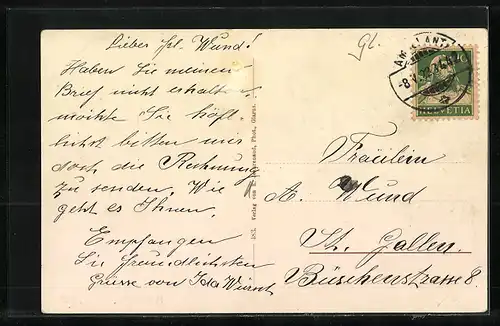 Lieber Frl. Wund!
Haben Sie meinen
Brief nicht erhalten,
möchte Sie höfl-
lichst bitten mir
doch die Rechnung
zu senden. Wie
geht es Ihnen.
Empfangen
Sie freundlichsten
Grüsse von Ida
Gl.
HELVETIA
Verlag von Phot., Glarus.
Fräulein
A. Wund
St. Gallen.
Büschenstrasse 8.